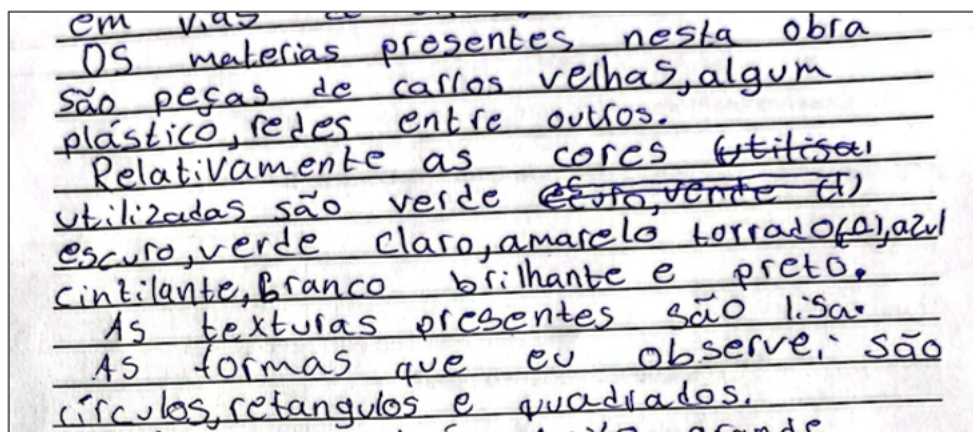 em vias de
OS materias presentes nesta obra
são peças de carros velhas, algum
plástico, redes entre outros.
Relativamente as cores utilisai
utilizadas são verde efuro, verde (1)
escuro, verde claro, amarelo torrado(1), azul
cintilante, branco brilhante e preto.
As texturas presentes são lisa.
As formas que eu observei são
círculos, retangulos e quadrados.
grande